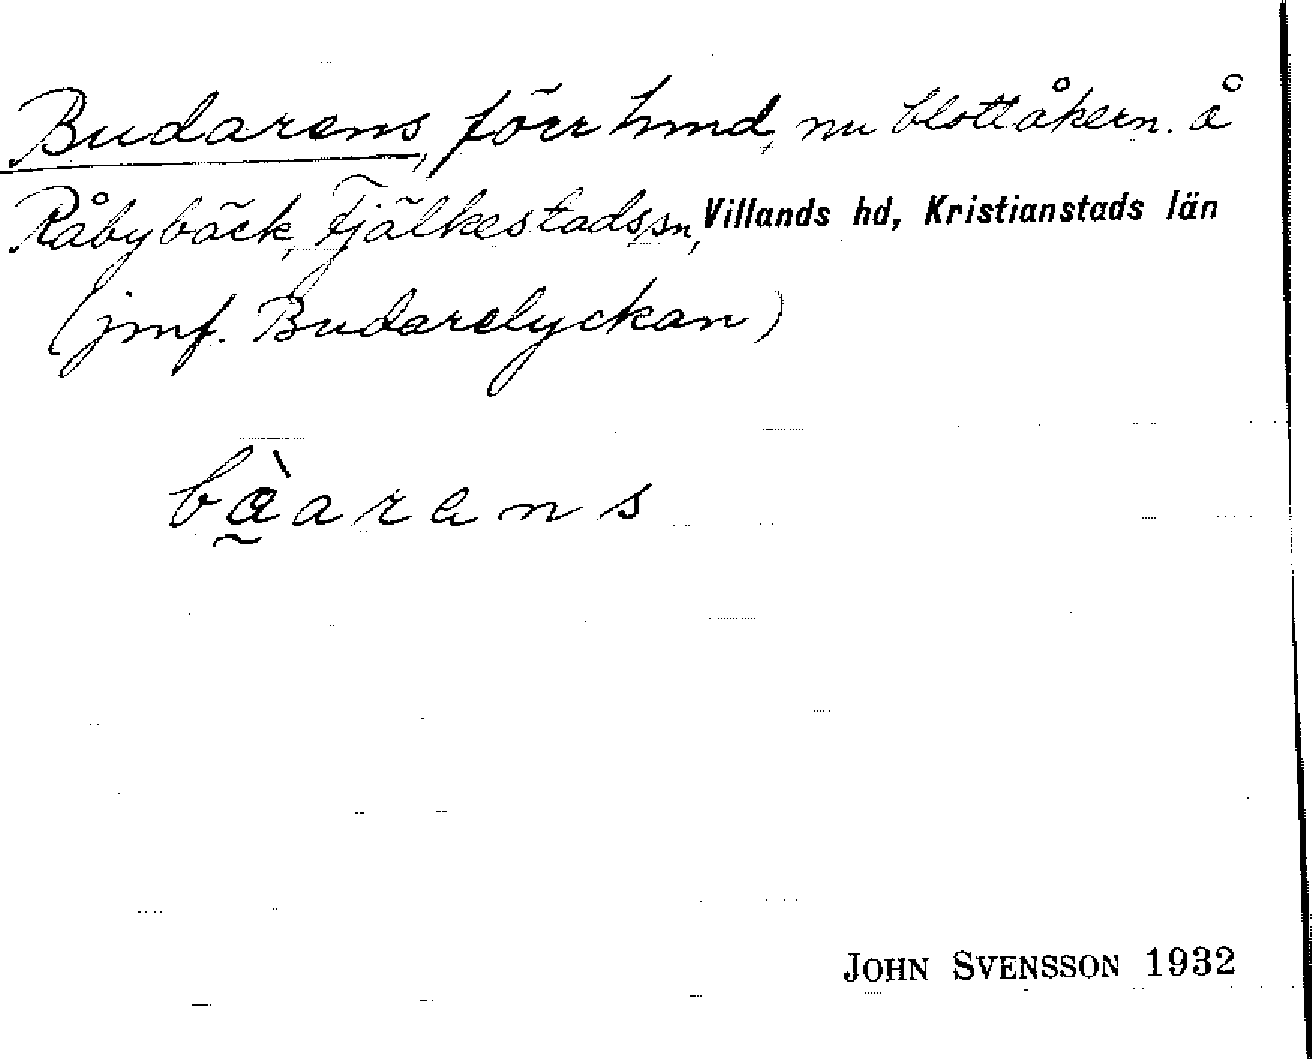 Budarens, förr hmd, nu blott åkern. å
Råbybäck, Fjälkestads sn, Villands hd, Kristianstads län
(jmf. Budarelyckan)
bàarans
JOHN SVENSSON 1932